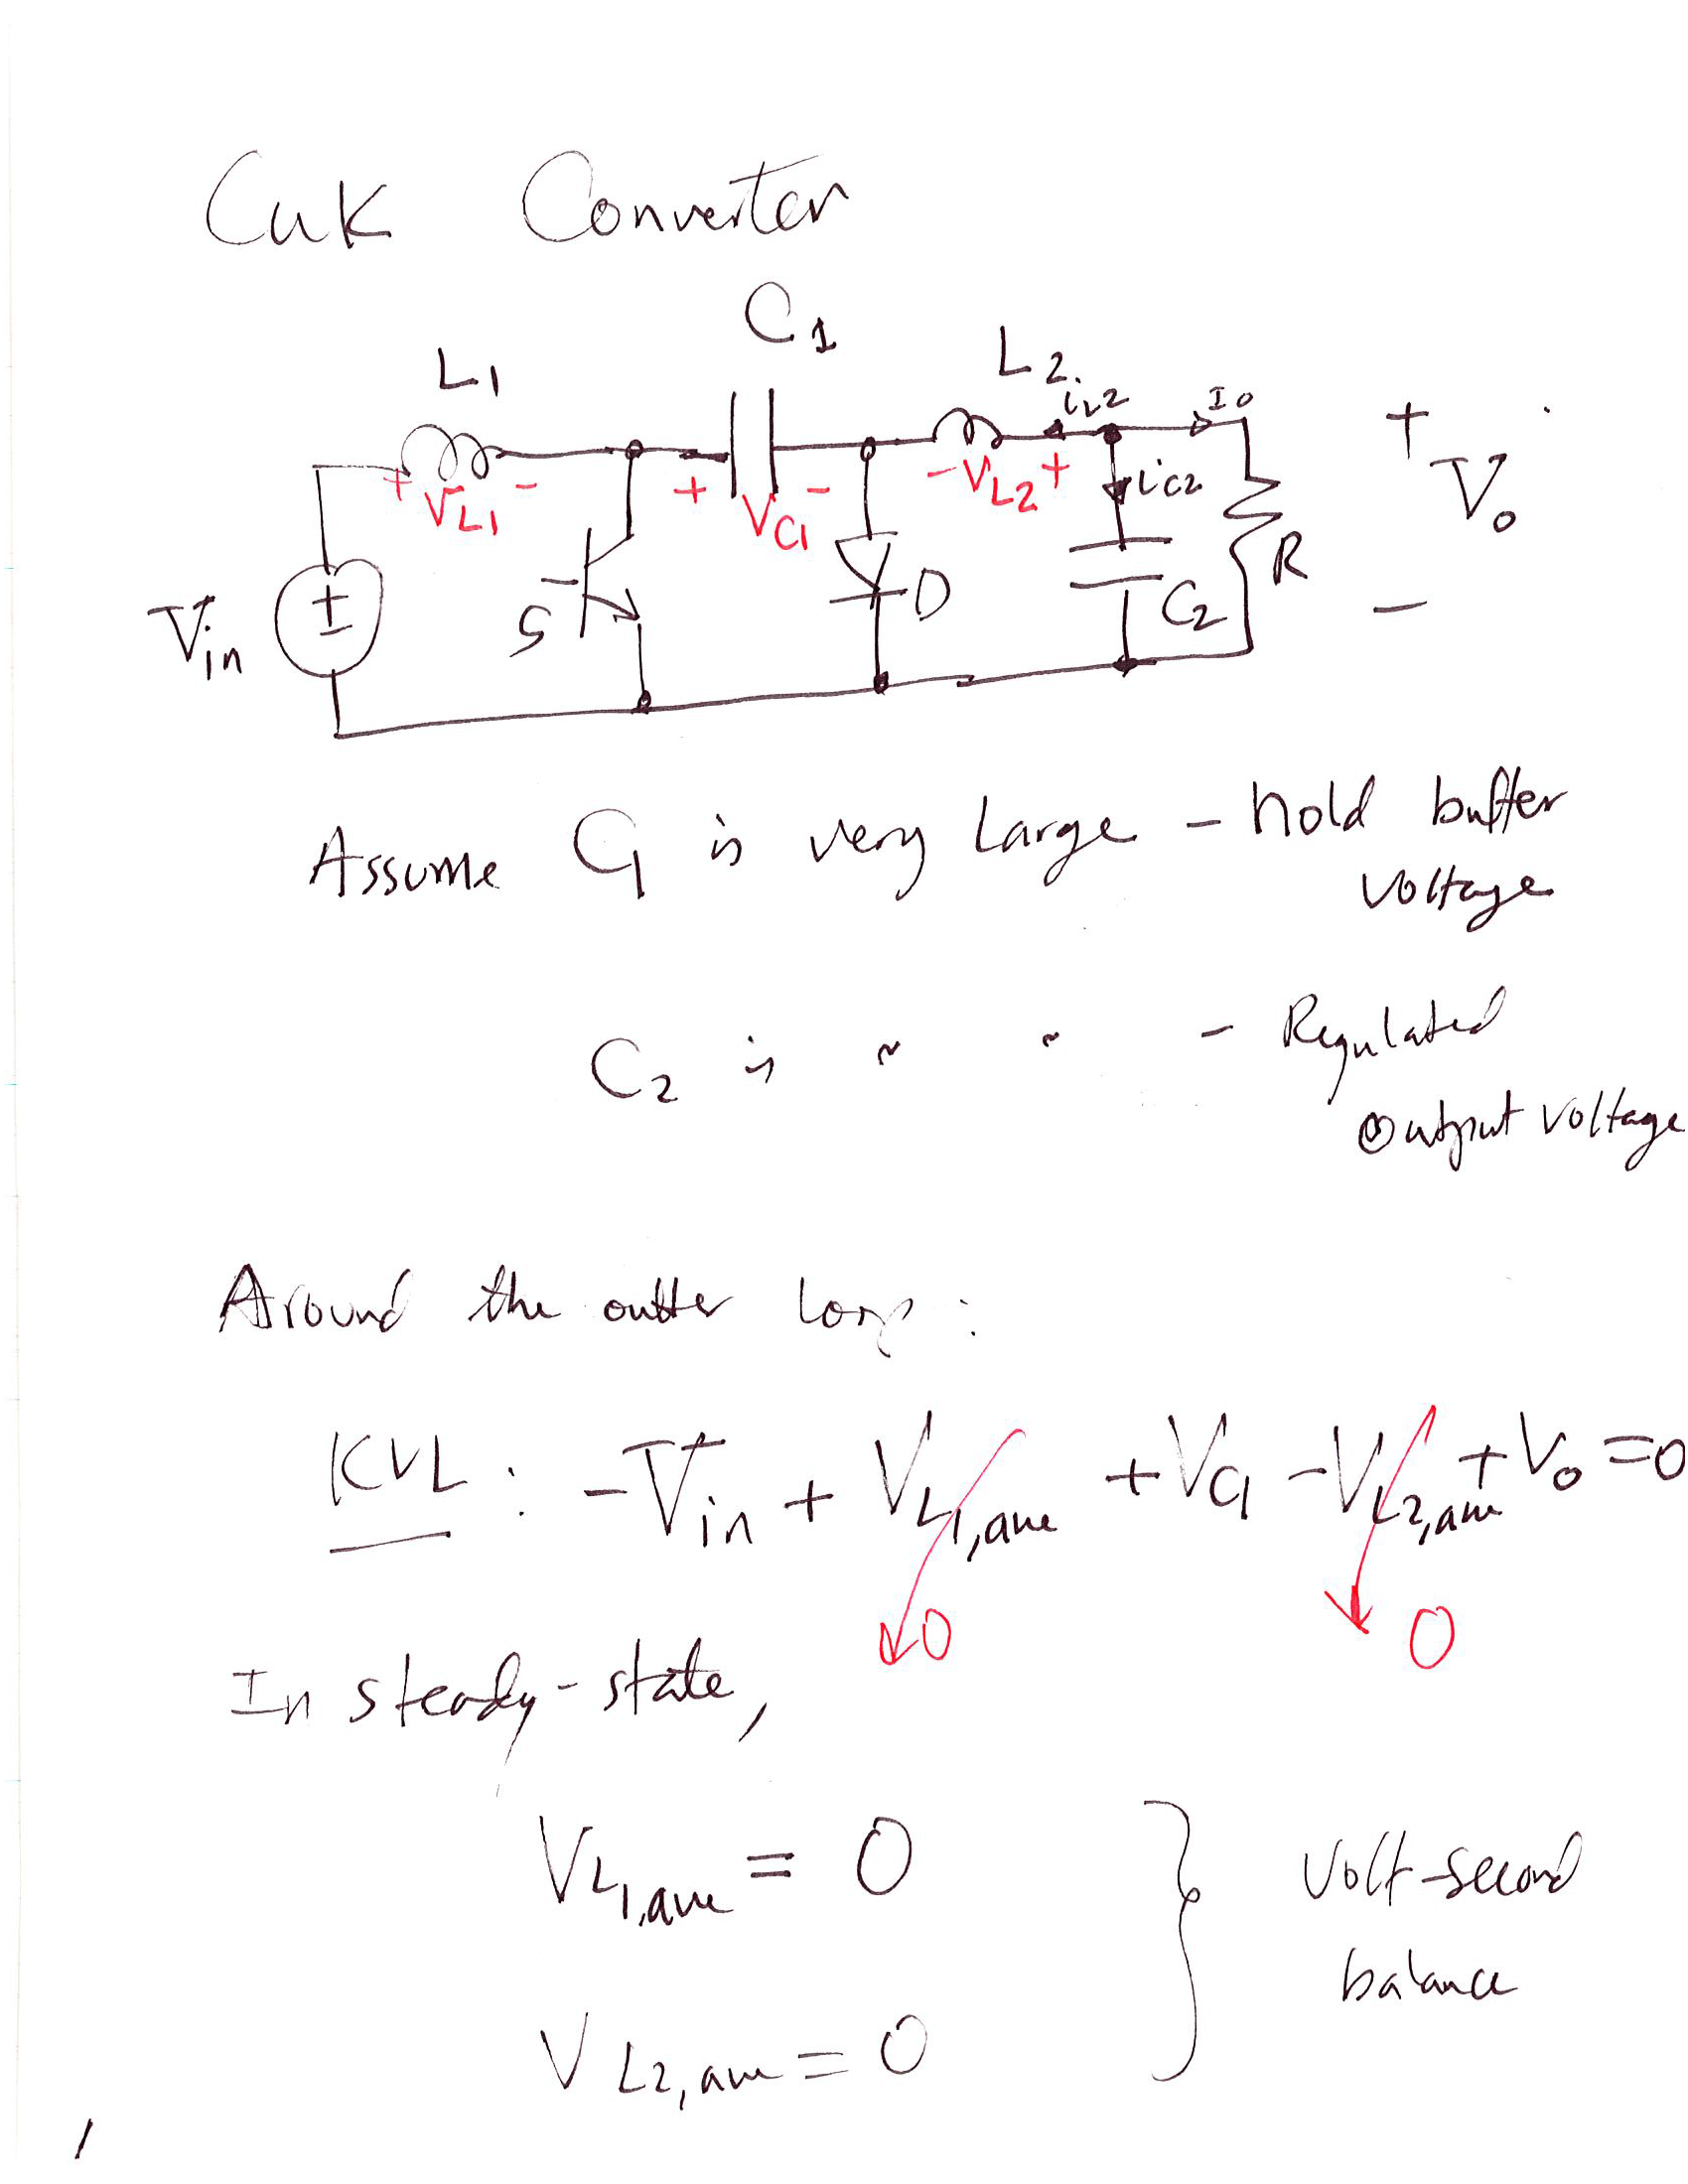 Cuk Converter
C1
L1
L2
iL2
Io
+ VL1 -
+ VC1 -
- VL2 +
iC2
+
Vo
-
R
C2
D
S
±
Vin
Assume C1 is very large - hold buffer
voltage
C2 is " " - Regulated
output voltage
Around the outter loop:
KVL: -Vin + VL1,ave + VC1 - VL2,ave + Vo = 0
0
0
In steady-state,
VL1,ave = 0
Volt-second
balance
VL2,ave = 0
1